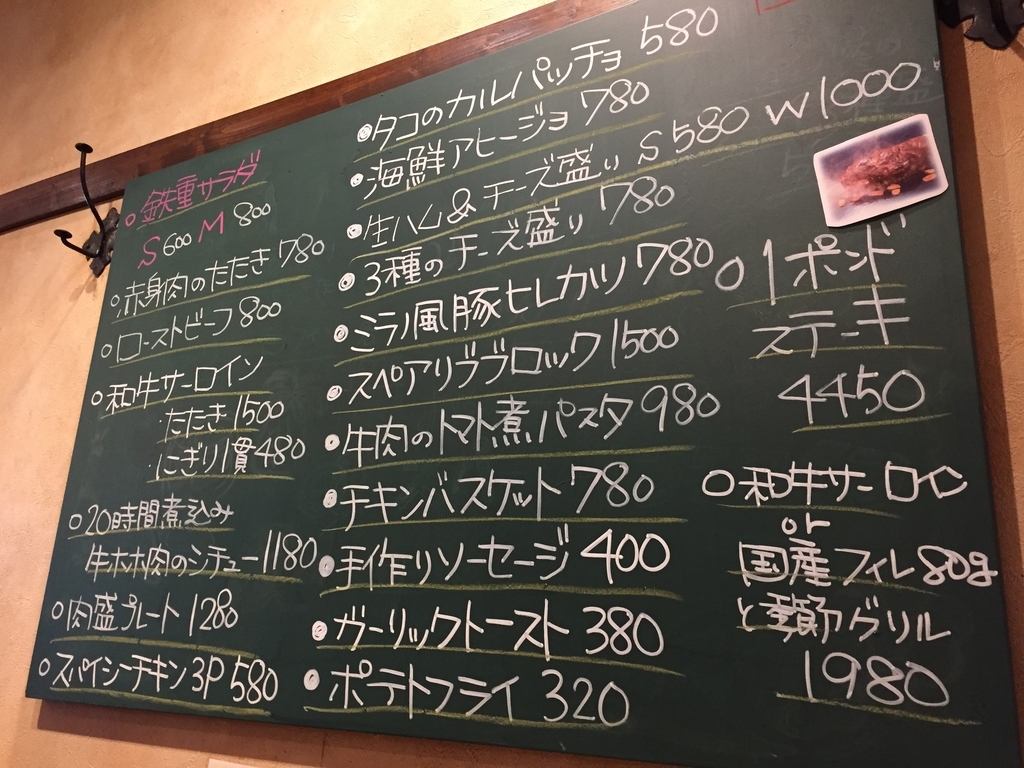 鉄重サラダ
S 600 M 800
赤身肉のたたき 780
ローストビーフ 800
和牛サーロイン
たたき 1500
にぎり1貫480
20時間煮込み
牛ホホ肉のシチュー1180
肉盛プレート 1280
スパイシーチキン 3P 580
タコのカルパッチョ 580
海鮮アヒージョ 780
生ハム & チーズ盛り S 580 W 1000
3種のチーズ盛り 780
ミラノ風豚ヒレカツ 780
スペアリブブロック 1500
牛肉のトマト煮パスタ 980
チキンバスケット 780
手作りソーセージ 400
ガーリックトースト 380
ポテトフライ 320
1ポンド
ステーキ
4450
和牛サーロイン
or
国産フィレ 80g
と季節グリル
1980